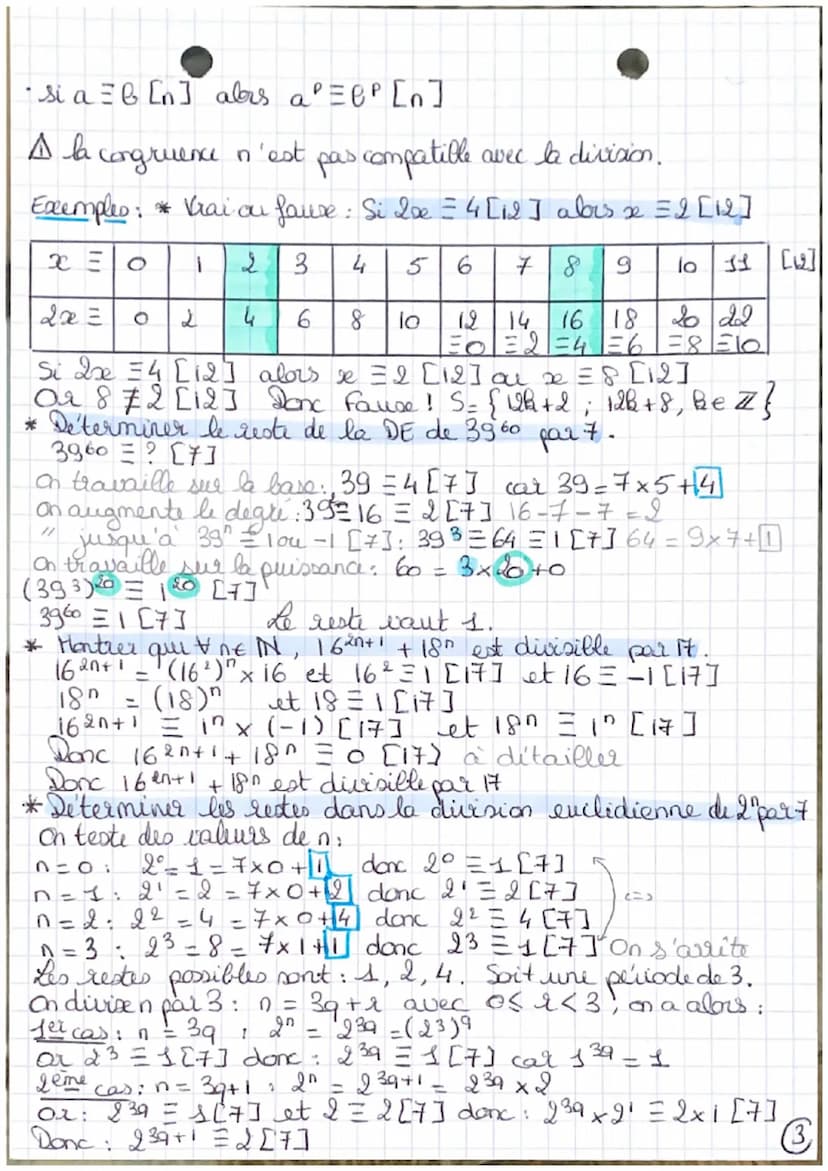 · si a ≡ b [n] alors aᵖ ≡ bᵖ [n]
⚠ la congruence n'est pas compatible avec la division.
Exemples : * Vrai ou fausse : Si 2x ≡ 4 [12] alors x ≡ 2 [12]
x ≡ 0 1 2 3 4 5 6 7 8 9 10 11 [12]
2x ≡ 0 2 4 6 8 10 12 14 16 18 20 22
≡0 ≡2 ≡4 ≡6 ≡8 ≡10
Si 2x ≡ 4 [12] alors x ≡ 2 [12] ou x ≡ 8 [12]
Or 8 ≢ 2 [12] Donc Fausse ! S = { 12k+2 ; 12k+8, k ∈ ℤ }
* Déterminer le reste de la DE de 39⁶⁰ par 7.
39⁶⁰ ≡ ? [7]
On travaille sur la base : 39 ≡ 4 [7] car 39 = 7×5+4
on augmente le degré : 39² ≡ 16 ≡ 2 [7] 16-7-7 = 2
" jusqu'à 39ⁿ ≡ 1 ou -1 [7] : 39³ ≡ 64 ≡ 1 [7] 64 = 9×7+1
On travaille sur la puissance : 60 = 3×20+0
(39³)²⁰ ≡ 1²⁰ [7]
39⁶⁰ ≡ 1 [7] Le reste vaut 1.
* Montrer que ∀ n ∈ ℕ, 16²ⁿ⁺¹ + 18ⁿ est divisible par 17.
16²ⁿ⁺¹ = (16²)ⁿ × 16 et 16² ≡ 1 [17] et 16 ≡ -1 [17]
18ⁿ = (18)ⁿ et 18 ≡ 1 [17]
16²ⁿ⁺¹ ≡ 1ⁿ × (-1) [17] et 18ⁿ ≡ 1ⁿ [17]
Donc 16²ⁿ⁺¹ + 18ⁿ ≡ 0 [17] à détailler
Donc 16²ⁿ⁺¹ + 18ⁿ est divisible par 17
* Déterminer les restes dans la division euclidienne de 2ⁿ par 7
On teste des valeurs de n :
n = 0 : 2⁰ = 1 = 7×0+1 donc 2⁰ ≡ 1 [7]
n = 1 : 2¹ = 2 = 7×0+2 donc 2¹ ≡ 2 [7] <=>
n = 2 : 2² = 4 = 7×0+4 donc 2² ≡ 4 [7]
n = 3 : 2³ = 8 = 7×1+1 donc 2³ ≡ 1 [7] On s'arrête
Les restes possibles sont : 1, 2, 4. Soit une période de 3.
On divise n par 3 : n = 3q+r avec 0 ≤ r < 3, on a alors :
1er cas : n = 3q , 2ⁿ = 2³q = (2³)q
or 2³ ≡ 1 [7] donc : 2³q ≡ 1 [7] car 1³q = 1
2ème cas : n = 3q+1 , 2ⁿ = 2³q⁺¹ = 2³q × 2
Or : 2³q ≡ 1 [7] et 2 ≡ 2 [7] donc : 2³q × 2¹ ≡ 2×1 [7]
Donc : 2³q⁺¹ ≡ 2 [7]
3